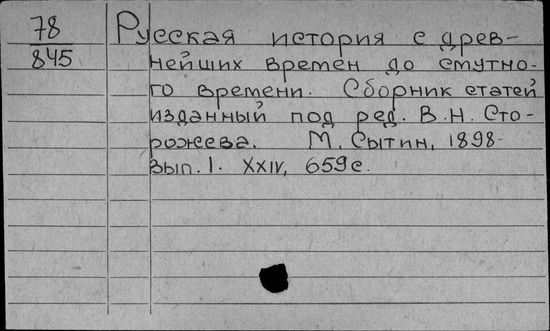 78
845
Русская история с древ-
нейших времен до смутно-
го времени. Сборник статей
изданный под ред. В.Н. Сто-
рожева. М. Сытин, 1898-
Вып. I. XXIV, 659 с.